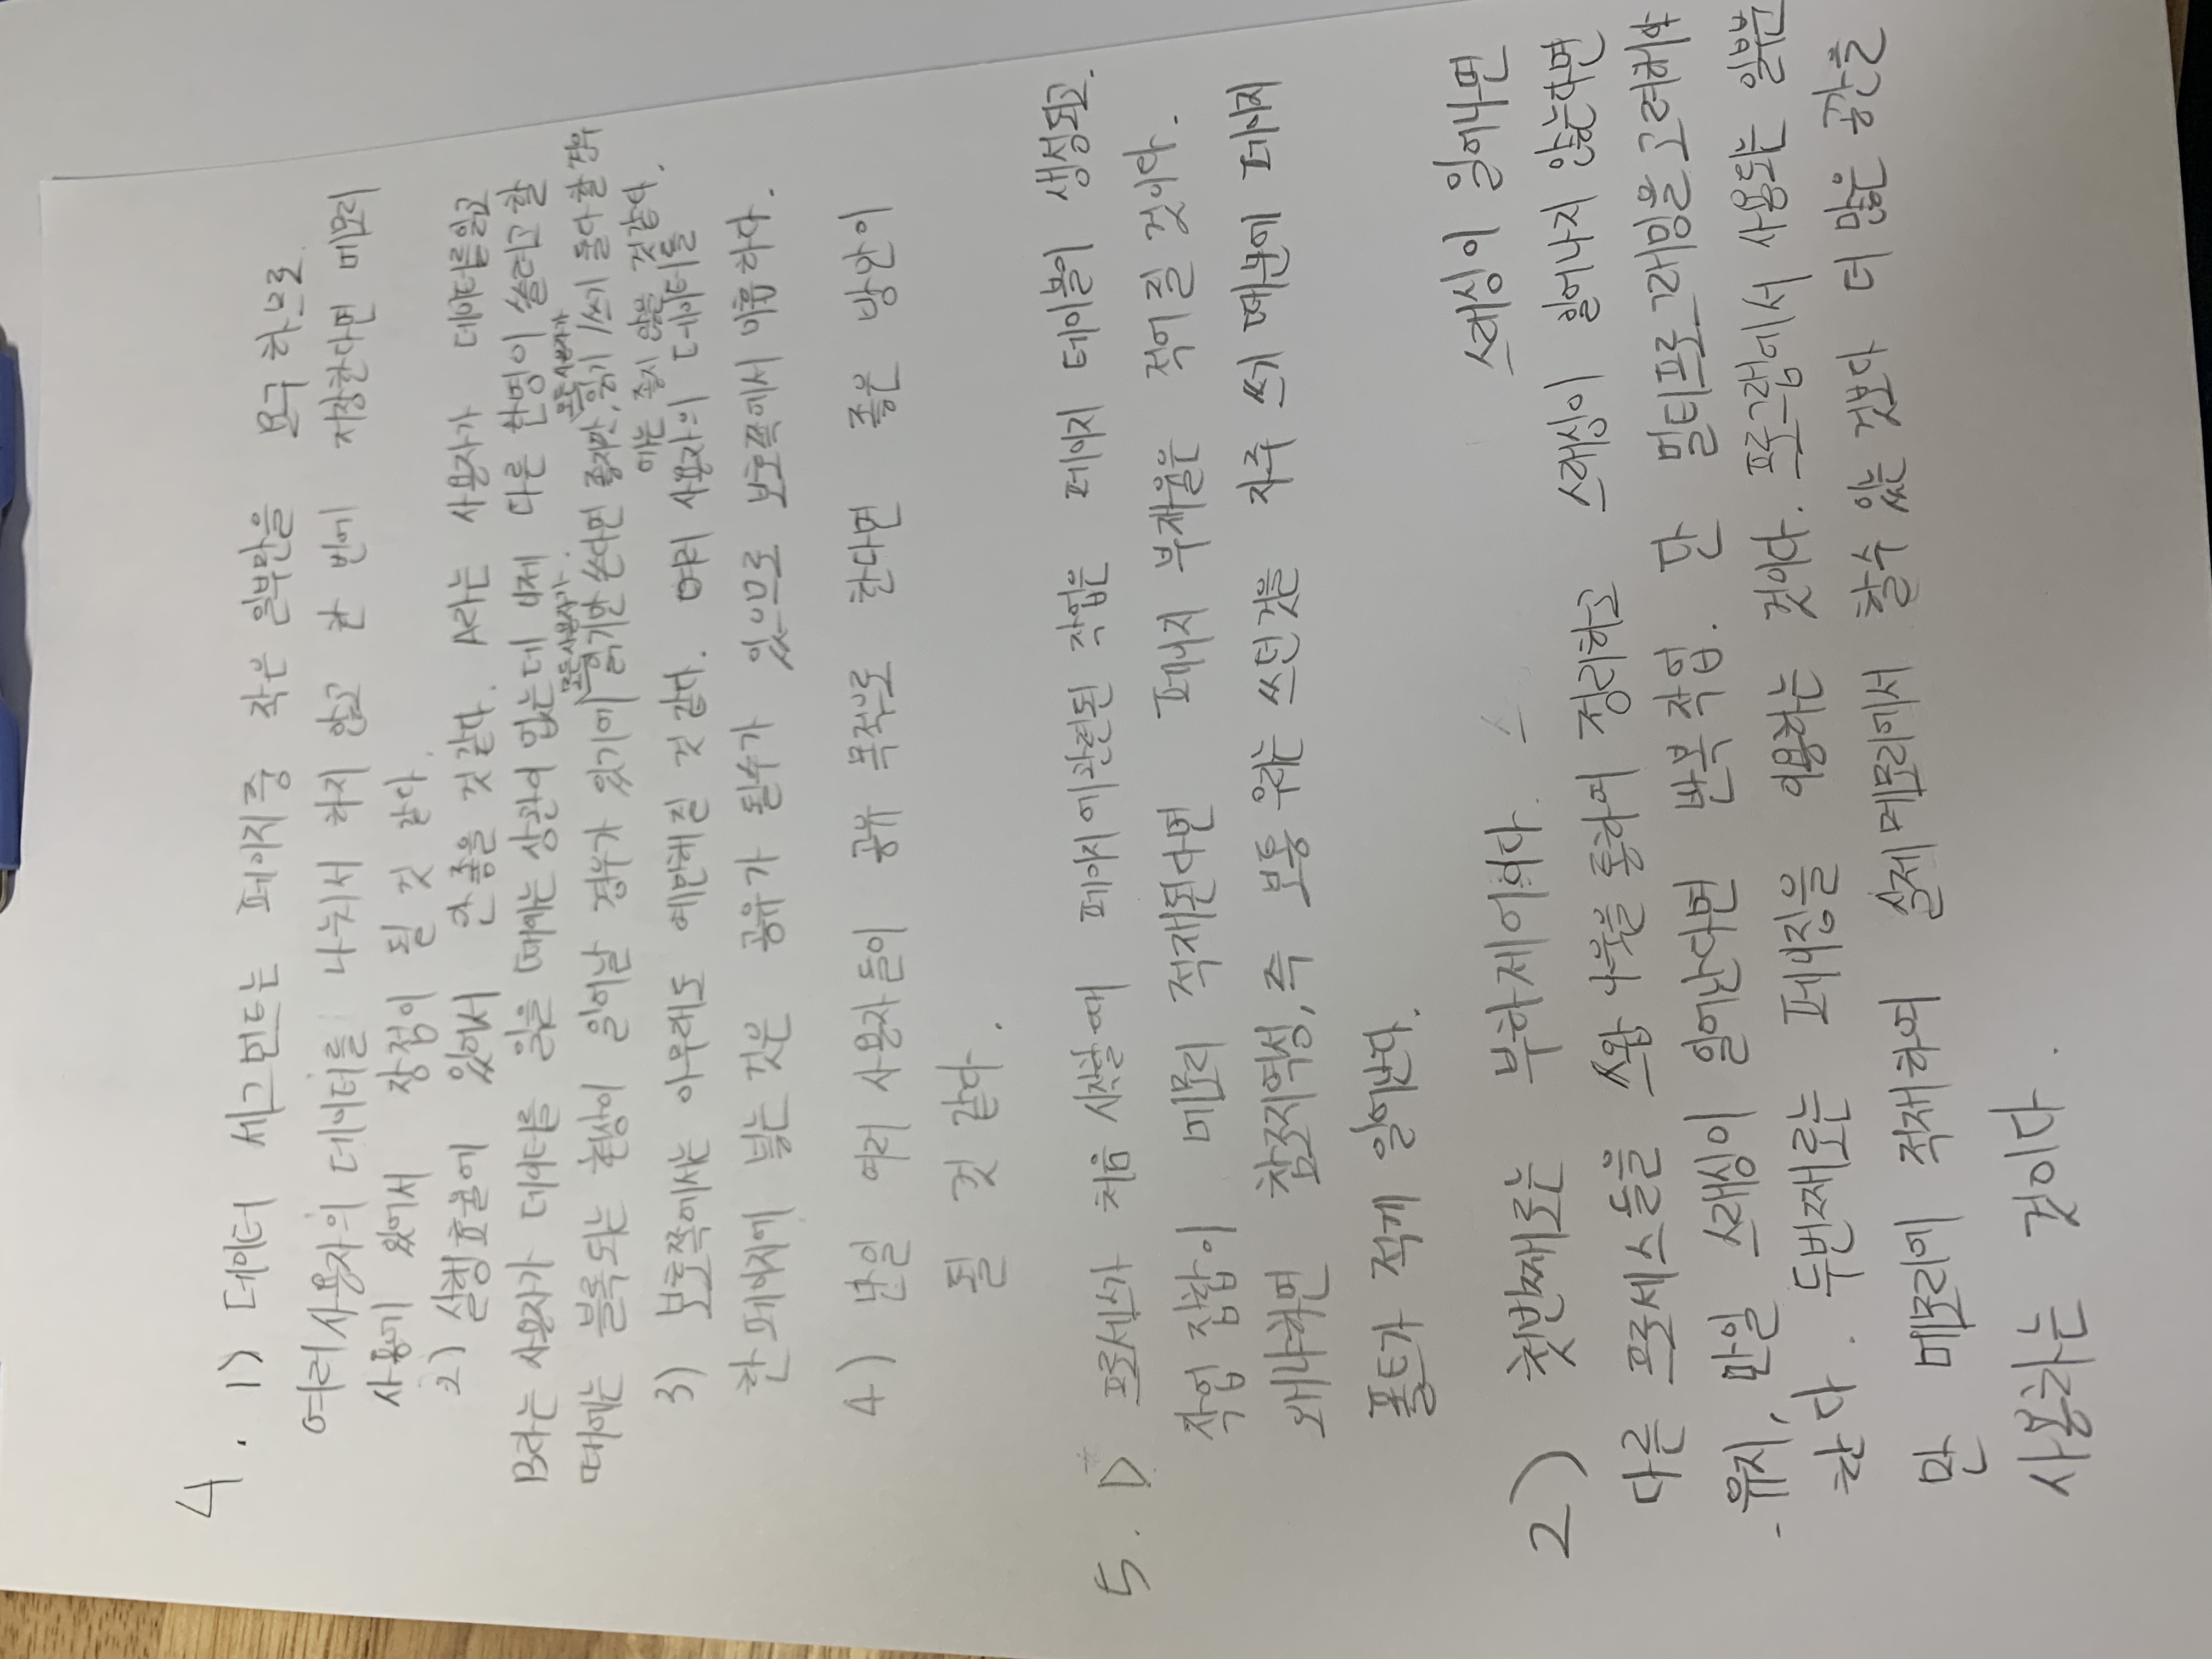 4. 1) 데이터 세그먼트는 페이지중 작은 일부만을 요구하므로
여러 사용자의 데이터를 나눠서 하지 않고 한 번에 저장한다면 메모리
사용에 있어서 장점이 될 것 같다.
2) 실행효율에 있어서 안 좋을 것 같다. A라는 사용자가 데이터를 읽고
B라는 사용자가 데이터를 읽을 때에는 상관이 없는데 이제 다른 한명이 쓸려고 할
때에는 블록되는 현상이 일어날 경우가 있기에 모든 사용자가 읽기만 쓴다면 좋지만, 모든 사용자가 읽기/쓰기 둘다 할 경우
에는 좋지 않을 것 같다.
3) 보호쪽에서는 아무래도 예민해질 것 같다. 여러 사용자의 데이터를
한 페이지에 넣는 것은 공유가 될수가 있으므로 보호쪽에서 미흡하다.
4) 만일 여러 사용자들이 공유 목적으로 한다면 좋은 방안이
될 것 같다.
5. 1) 프로세스가 처음 시작할 때 페이지에 관련된 작업은 페이지 테이블이 생성되고.
작업 집합이 메모리 적재된다면 페이지 부재율은 적어질 것이다.
왜냐하면 참조지역성, 즉 보통 우리는 쓰던것을 자주 쓰기 때문에 페이지
폴트가 적게 일어난다.
2) 첫번째로는 부하제어이다. 스래싱이 일어나면
다른 프로세스들을 스왑 아웃을 통하여 정리하고 스래싱이 일어나지 않는다면
유지, 만일 스래싱이 일어난다면 반복작업. 단 멀티프로그래밍을 고려해야
한다. 두번째로는 페이징을 이용하는 것이다. 프로그램에서 사용되는 일부분
만 메모리에 적재하여 실제 메모리에서 할수 있는 것보다 더 많은 공간을
사용하는 것이다.